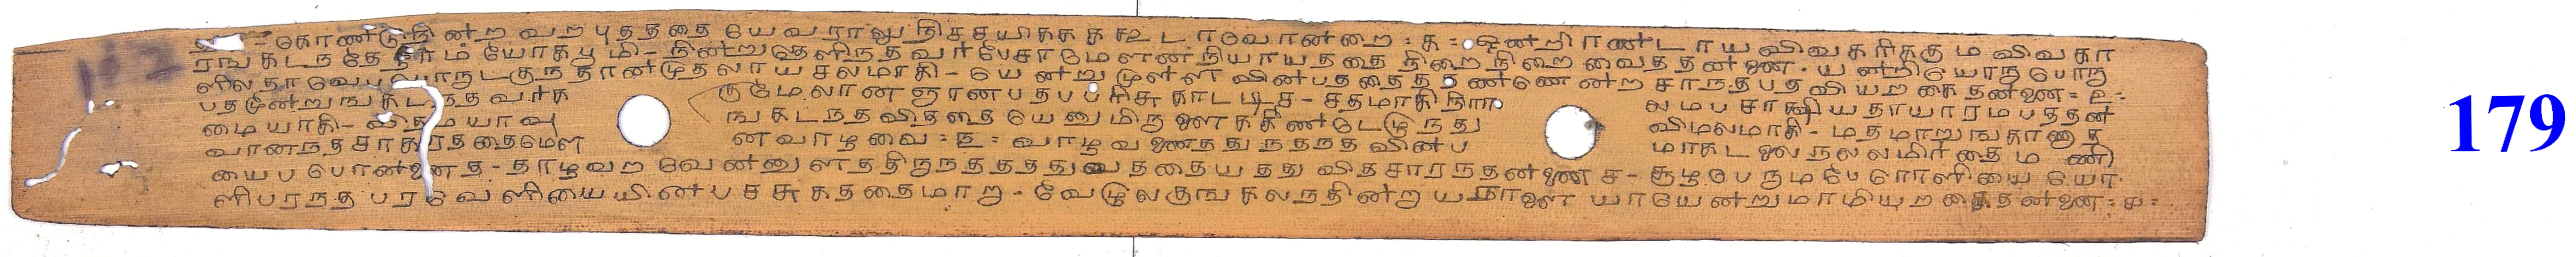 கொண்டு நின்ற வற புதததை யேவராலு நிசசயிகக க கூடாவொன்றை : க = ஒன்றிரண்டாய விவகரிககும விவகா
ரங கடநதே நாம யோகபூமி - நின்று தெளிநதவர பேசா மௌன நியாயததை நிறை நிறை வைததன்ணை . யன்றியொரு பொரு
ளில தாவே குந தானமுதலாய சலமாகி - யென்றுமுள்ள வின்பததைத தண்ணென்ற சாநத பத வியறகை தன்ணை = உ =
பதமூன்றுங கடநதவரக குமேலான ஞானபதப பரிசு காடடிச - சதமாகி நிரா லமப சாகஷியதாயாரமபததன்
மையாகி - விதமயாவு ஙகடநத விததை யெனுமிருளைக கீண்டெழுநது விமலமாகி - மதமாறுங காணுத
வானநத சாகரததை மௌ னவாழவை = ங = வாழவனைதது நதநத வின்ப மாகடலை நலலமிரதை ம ணி
யைப பொன்னைத - தாழவற வென்னுளததிருநத ததததுவததையதது விதசாரநதன்ணை ச - சூழ பெரும பேரொளியை யொ
ளிபரநத பரவெளியை யின்பச சுகததை மாறு - வேழுலகுங கலநதின்று யாயென்றுமாமியறகைதன்ணை = ச =
179